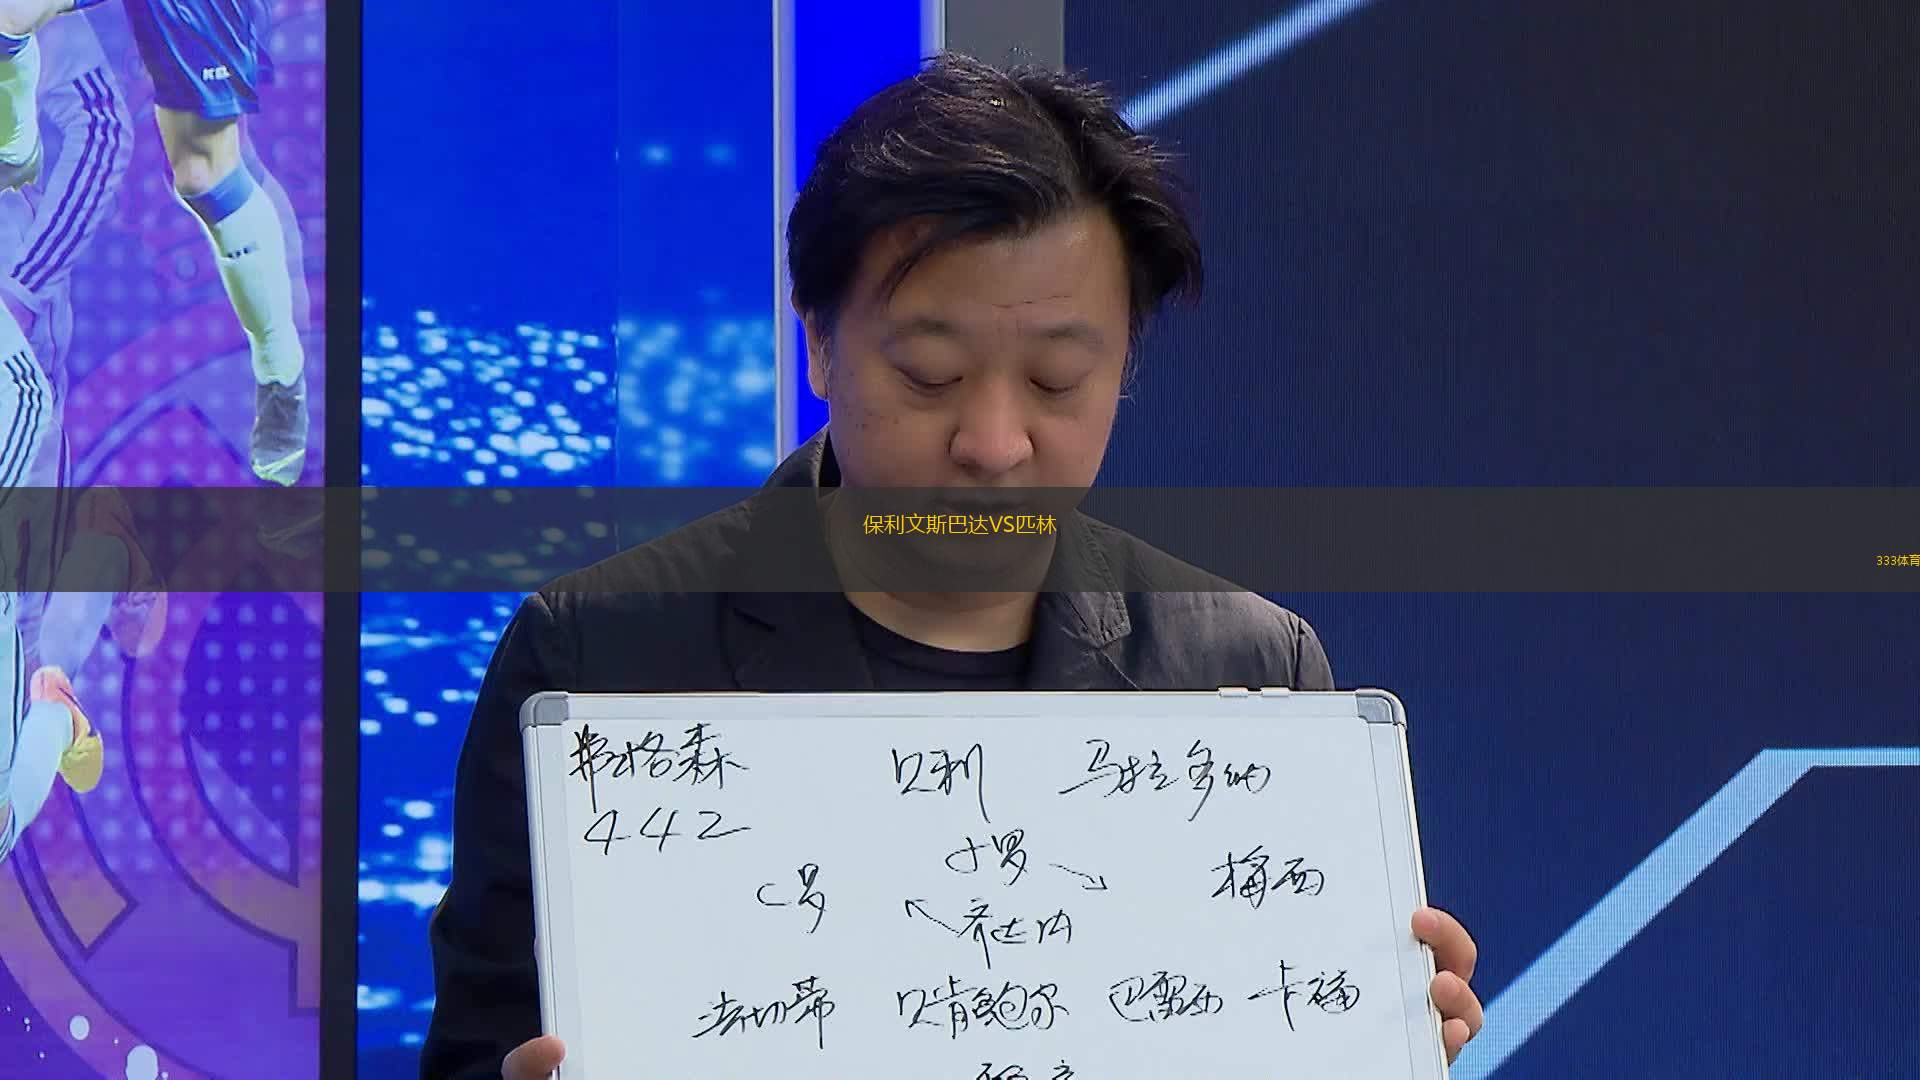 保利文斯巴达VS匹林
333体育
弗格森 贝利 马拉多纳
442
小罗
C罗 梅西
齐达内
法切蒂 贝肯鲍尔 巴雷西 卡福